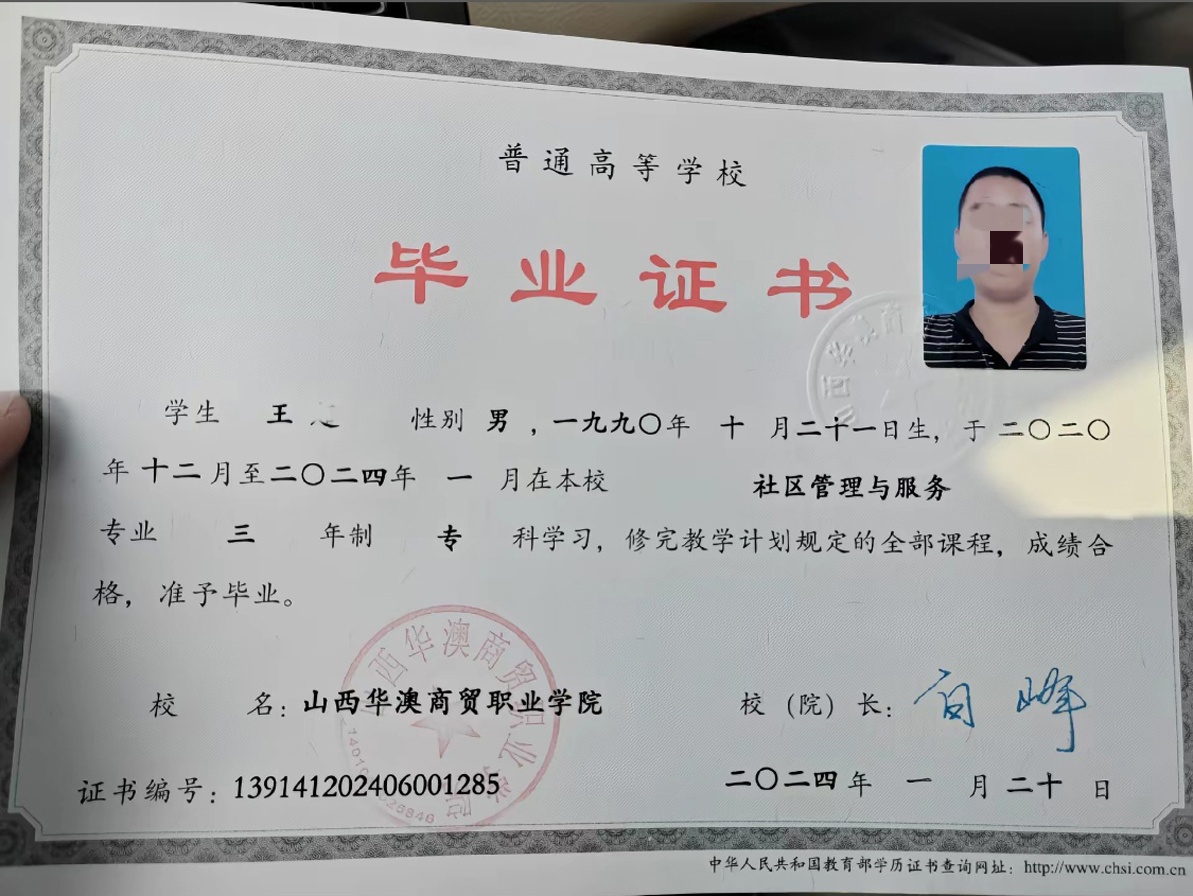 普通高等学校
毕业证书
学生 王 性别 男，一九九〇年 十 月二十一日生，于 二〇二〇
年 十二 月至二〇二四年 一 月在本校 社区管理与服务
专业 三 年制 专 科学习，修完教学计划规定的全部课程，成绩合
格，准予毕业。
西华澳商贸职业学院
校 名：山西华澳商贸职业学院 校（院）长：向峰
证书编号：139141202406001285 二〇二四年 一 月 二十 日
中华人民共和国教育部学历证书查询网址：http://www.chsi.com.cn